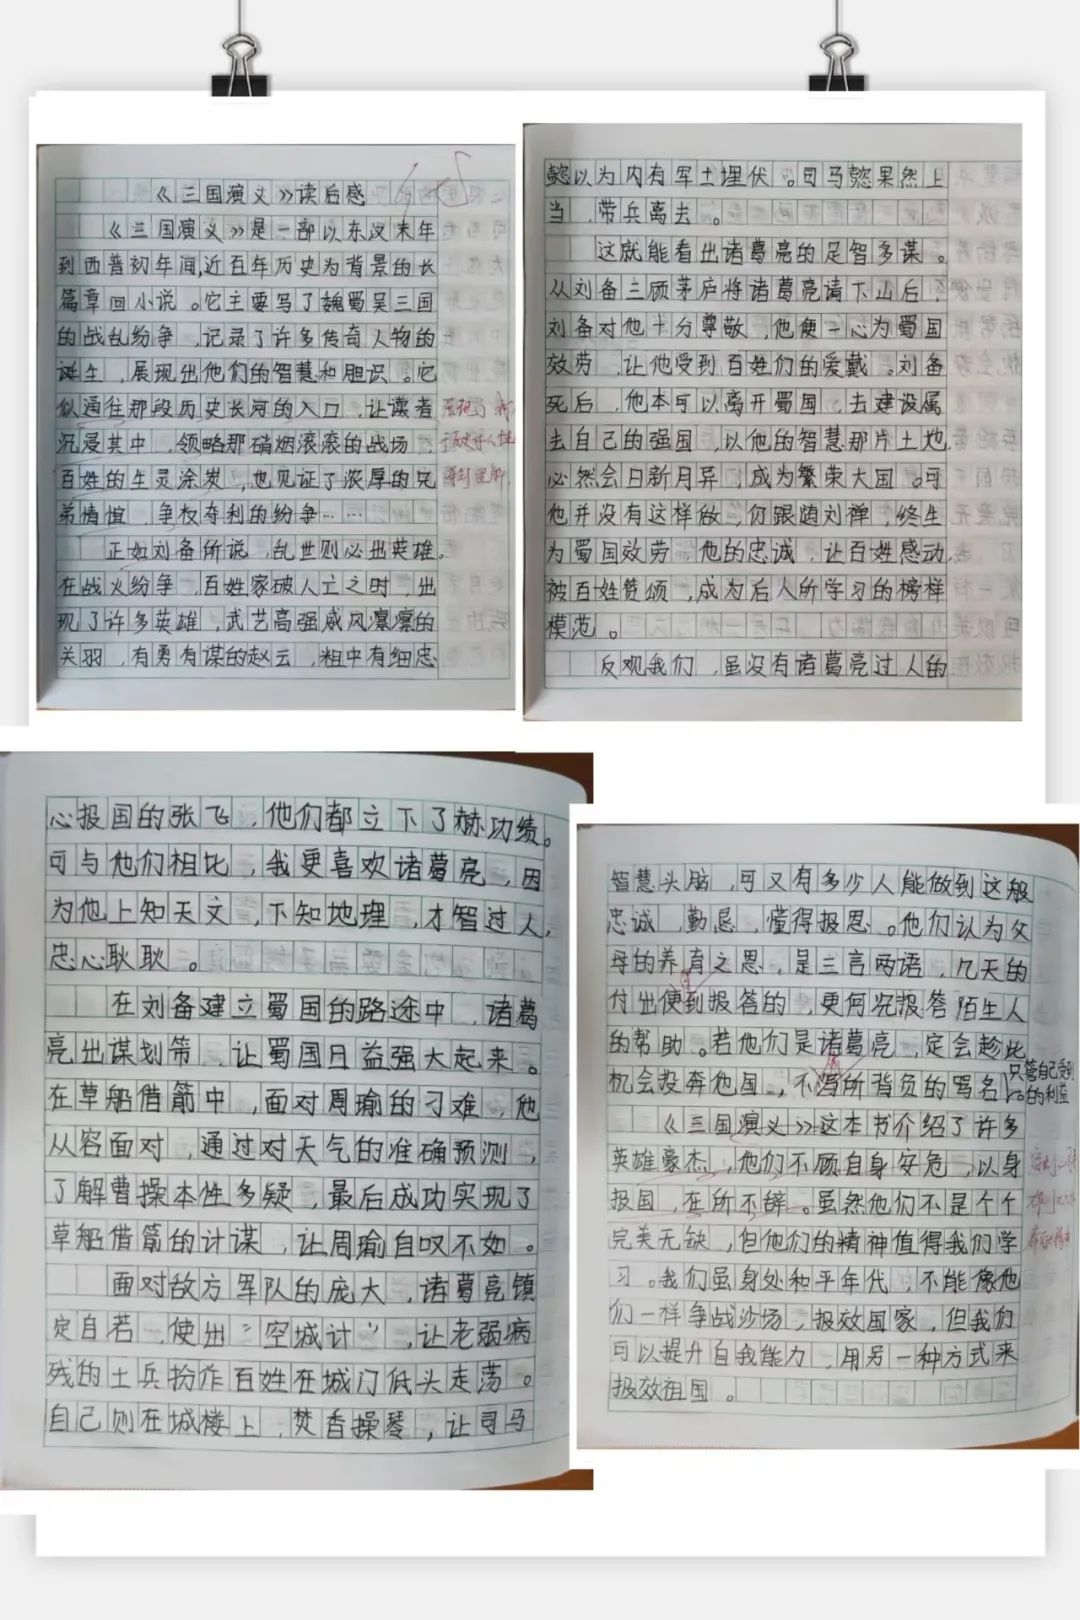 《三国演义》读后感
《三国演义》是一部以东汉末年
到西普初年间,近百年历史为背景的长
篇章回小说。它主要写了魏蜀吴三国
的战乱纷争,记录了许多传奇人物的
诞生,展现出他们的智慧和胆识。它
似通往那段历史长河的入口,让读者
沉浸其中,领略那硝烟滚滚的战场,
百姓的生灵涂炭,也见证了浓厚的兄
弟情谊,争权夺利的纷争……
正如刘备所说,乱世则必出英雄。
在战火纷争,百姓家破人亡之时,出
现了许多英雄,武艺高强威风凛凛的
关羽,有勇有谋的赵云,粗中有细忠
心报国的张飞,他们都立下了赫功绩。
可与他们相比,我更喜欢诸葛亮,因
为他上知天文,下知地理,才智过人,
忠心耿耿。
在刘备建立蜀国的路途中,诸葛
亮出谋划策,让蜀国日益强大起来。
在草船借箭中,面对周瑜的刁难,他
从容面对,通过对天气的准确预测,
了解曹操本性多疑,最后成功实现了
草船借箭的计谋,让周瑜自叹不如。
面对敌方军队的庞大,诸葛亮镇
定自若,使出“空城计”,让老弱病
残的士兵扮作百姓在城门低头走荡。
自己则在城楼上,焚香操琴,让司马
懿以为内有军士埋伏。司马懿果然上
当,带兵离去。
这就能看出诸葛亮的足智多谋。
从刘备三顾茅庐将诸葛亮请下山后,
刘备对他十分尊敬,他便一心为蜀国
效劳,让他受到百姓们的爱戴。刘备
死后,他本可以离开蜀国,去建设属
去自己的强国,以他的智慧那片土地,
必然会日新月异,成为繁荣大国。可
他并没有这样做,仍跟随刘禅,终生
为蜀国效劳。他的忠诚,让百姓感动,
被百姓赞颂,成为后人所学习的榜样
模范。
反观我们,虽没有诸葛亮过人的
智慧头脑,可又有多少人能做到这般
忠诚,勤恳,懂得报恩。他们认为父
母的养育之恩,是三言两语,几天的
付出便到报答的,更何况报答陌生人
的帮助。若他们是诸葛亮,定会趁此
机会投奔他国,不 所背负的骂名,
只管自己受到
的利益。
《三国演义》这本书介绍了许多
英雄豪杰,他们不顾自身安危,以身
报国,在所不辞。虽然他们不是个个
完美无缺,但他们的精神值得我们学
习。我们虽身处和平年代,不能像他
们一样争战沙场,报效国家,但我们
可以提升自我能力,用另一种方式来
报效祖国。